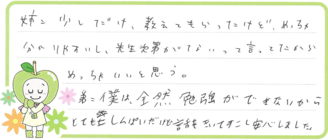 姉:少しだけ、教えてもらったけど、めっちゃ
分かりやすいし、先生も第がてないって言ってたから
めっちゃいいと思う。
弟:僕は、全然勉強ができないから
とても、しんぱいだけど話をきいてすこし安心しました。